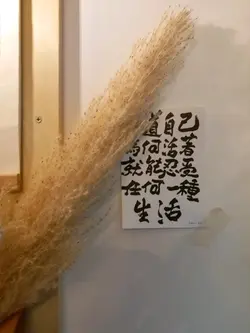 道自己
為何活著
就能忍受
任何一種
生活